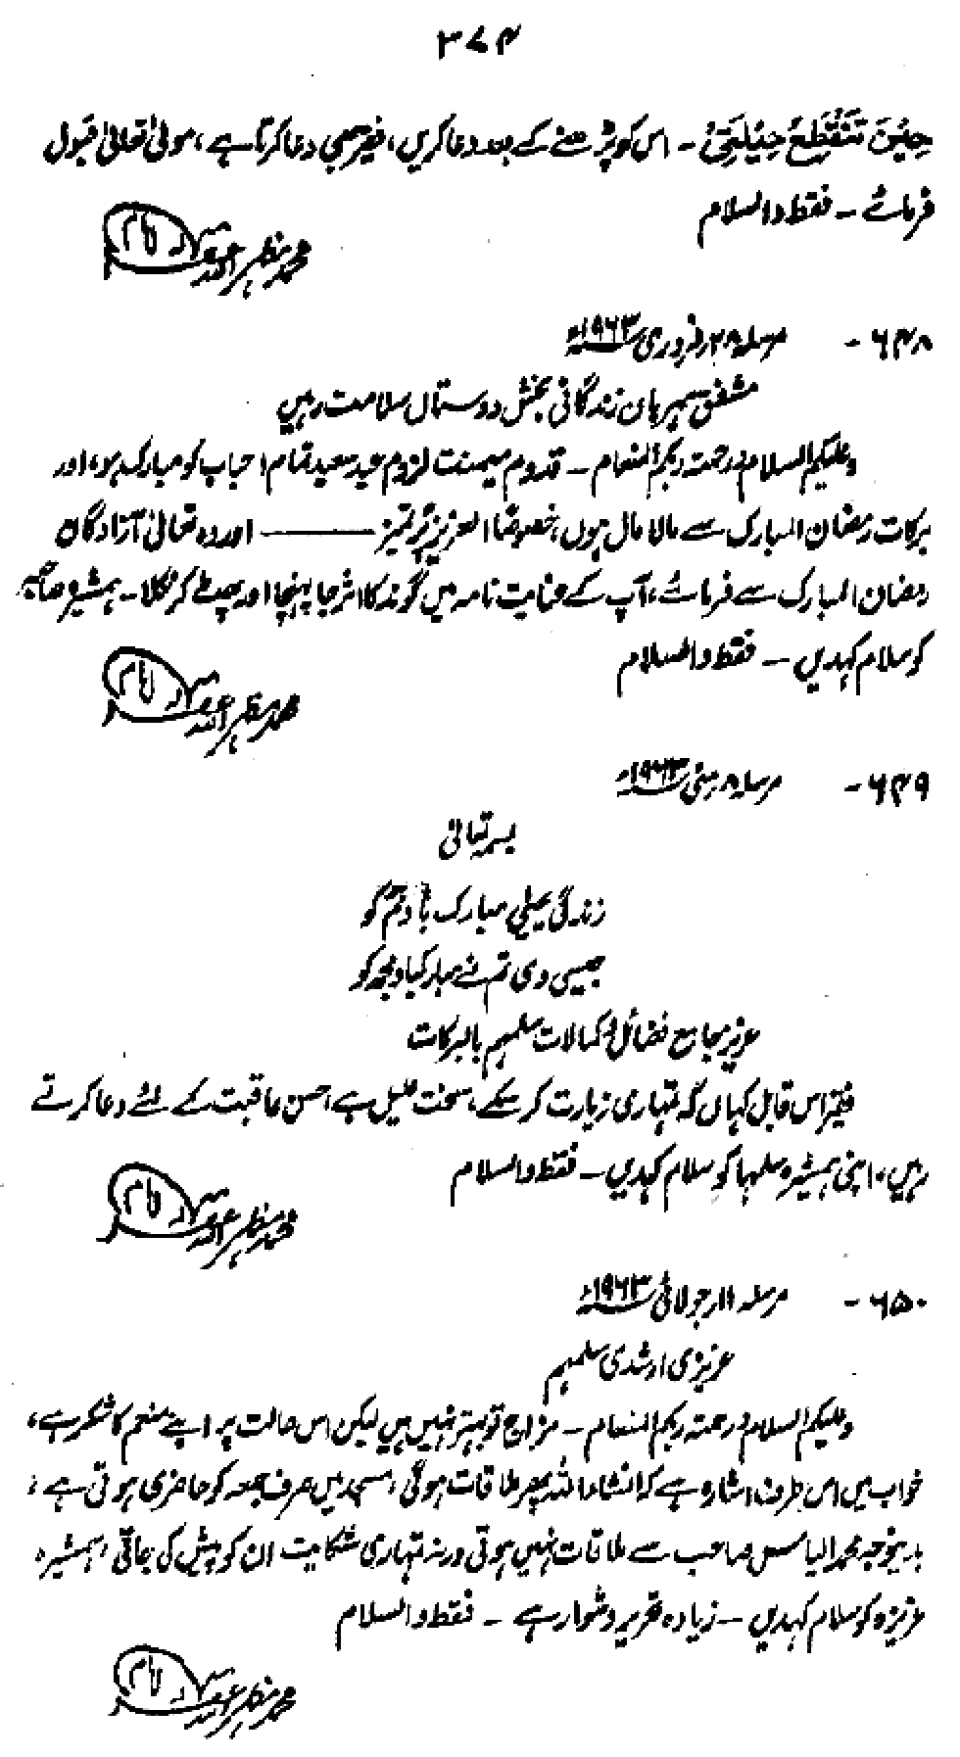 ۳۷۴
حِیْنَ تَنْقَطِعُ حِیْلَتِیْ ۔ اس کو پڑھنے کے بعد دعا کریں، فقیر بھی دعا کرتا ہے، مولیٰ تعالیٰ قبول
فرمائے ۔ فقط والسلام
محمد مظہر اللہ غفرلہ امام
۶۴۸ ۔ مرسلہ ۲۸ فروری ۱۹۶۳ء
مشفق مہربان زندگانی بخش دوستاں سلامت رہیں
وعلیکم السلام ورحمۃ ربکم المنعام ۔ قدوم میمنت لزوم عید سعید تمام احباب کو مبارک ہو، اور
برکات رمضان المبارک سے مالا مال ہوں، خصوصاً العزیز پُر تمیز ——— اور وہ تعالیٰ آزادگان
رمضان المبارک سے فرمائے، آپ کے عنایت نامہ میں گوند کا اثر جا پہنچا اور پھٹ کر نکلا ۔ ہمشیر صاحبہ
کو سلام کہدیں ۔ فقط والسلام
محمد مظہر اللہ غفرلہ امام
۶۴۹ ۔ مرسلہ ۸ مئی ۱۹۶۳ء
بسمہ تعالیٰ
زندگی بھلی مبارک باد تم کو
جیسی دی تم نے مبارکباد مجھ کو
عزیز جامع فضائل و کمالات سلمہم بالبرکات
فقیر اس قابل کہاں کہ تمہاری زیارت کر سکے، سخت علیل ہے، حسن عاقبت کے لئے دعا کرتے
رہیں، اپنی ہمشیرہ سلمہا کو سلام کہدیں ۔ فقط والسلام
محمد مظہر اللہ غفرلہ امام
۶۵۰ ۔ مرسلہ ۱۱ر جولائی ۱۹۶۳ء
عزیزی ارشدی سلمہم
وعلیکم السلام ورحمۃ ربکم المنعام ۔ مزاج تو بہتر نہیں ہیں لیکن اس حالت پر اپنے منعم کا شکر ہے،
خواب میں اس طرف اشارہ ہے کہ انشاء اللہ پھر ملاقات ہوگی، مسجد میں صرف جمعہ کو حاضری ہوتی ہے،
بدیں وجہ محمد الیاس صاحب سے ملاقات نہیں ہوتی ورنہ تمہاری شکایت ان کو پیش کی جاتی، ہمشیرہ
عزیزہ کو سلام کہدیں ۔ زیادہ تحریر دشوار ہے ۔ فقط والسلام
محمد مظہر اللہ غفرلہ امام